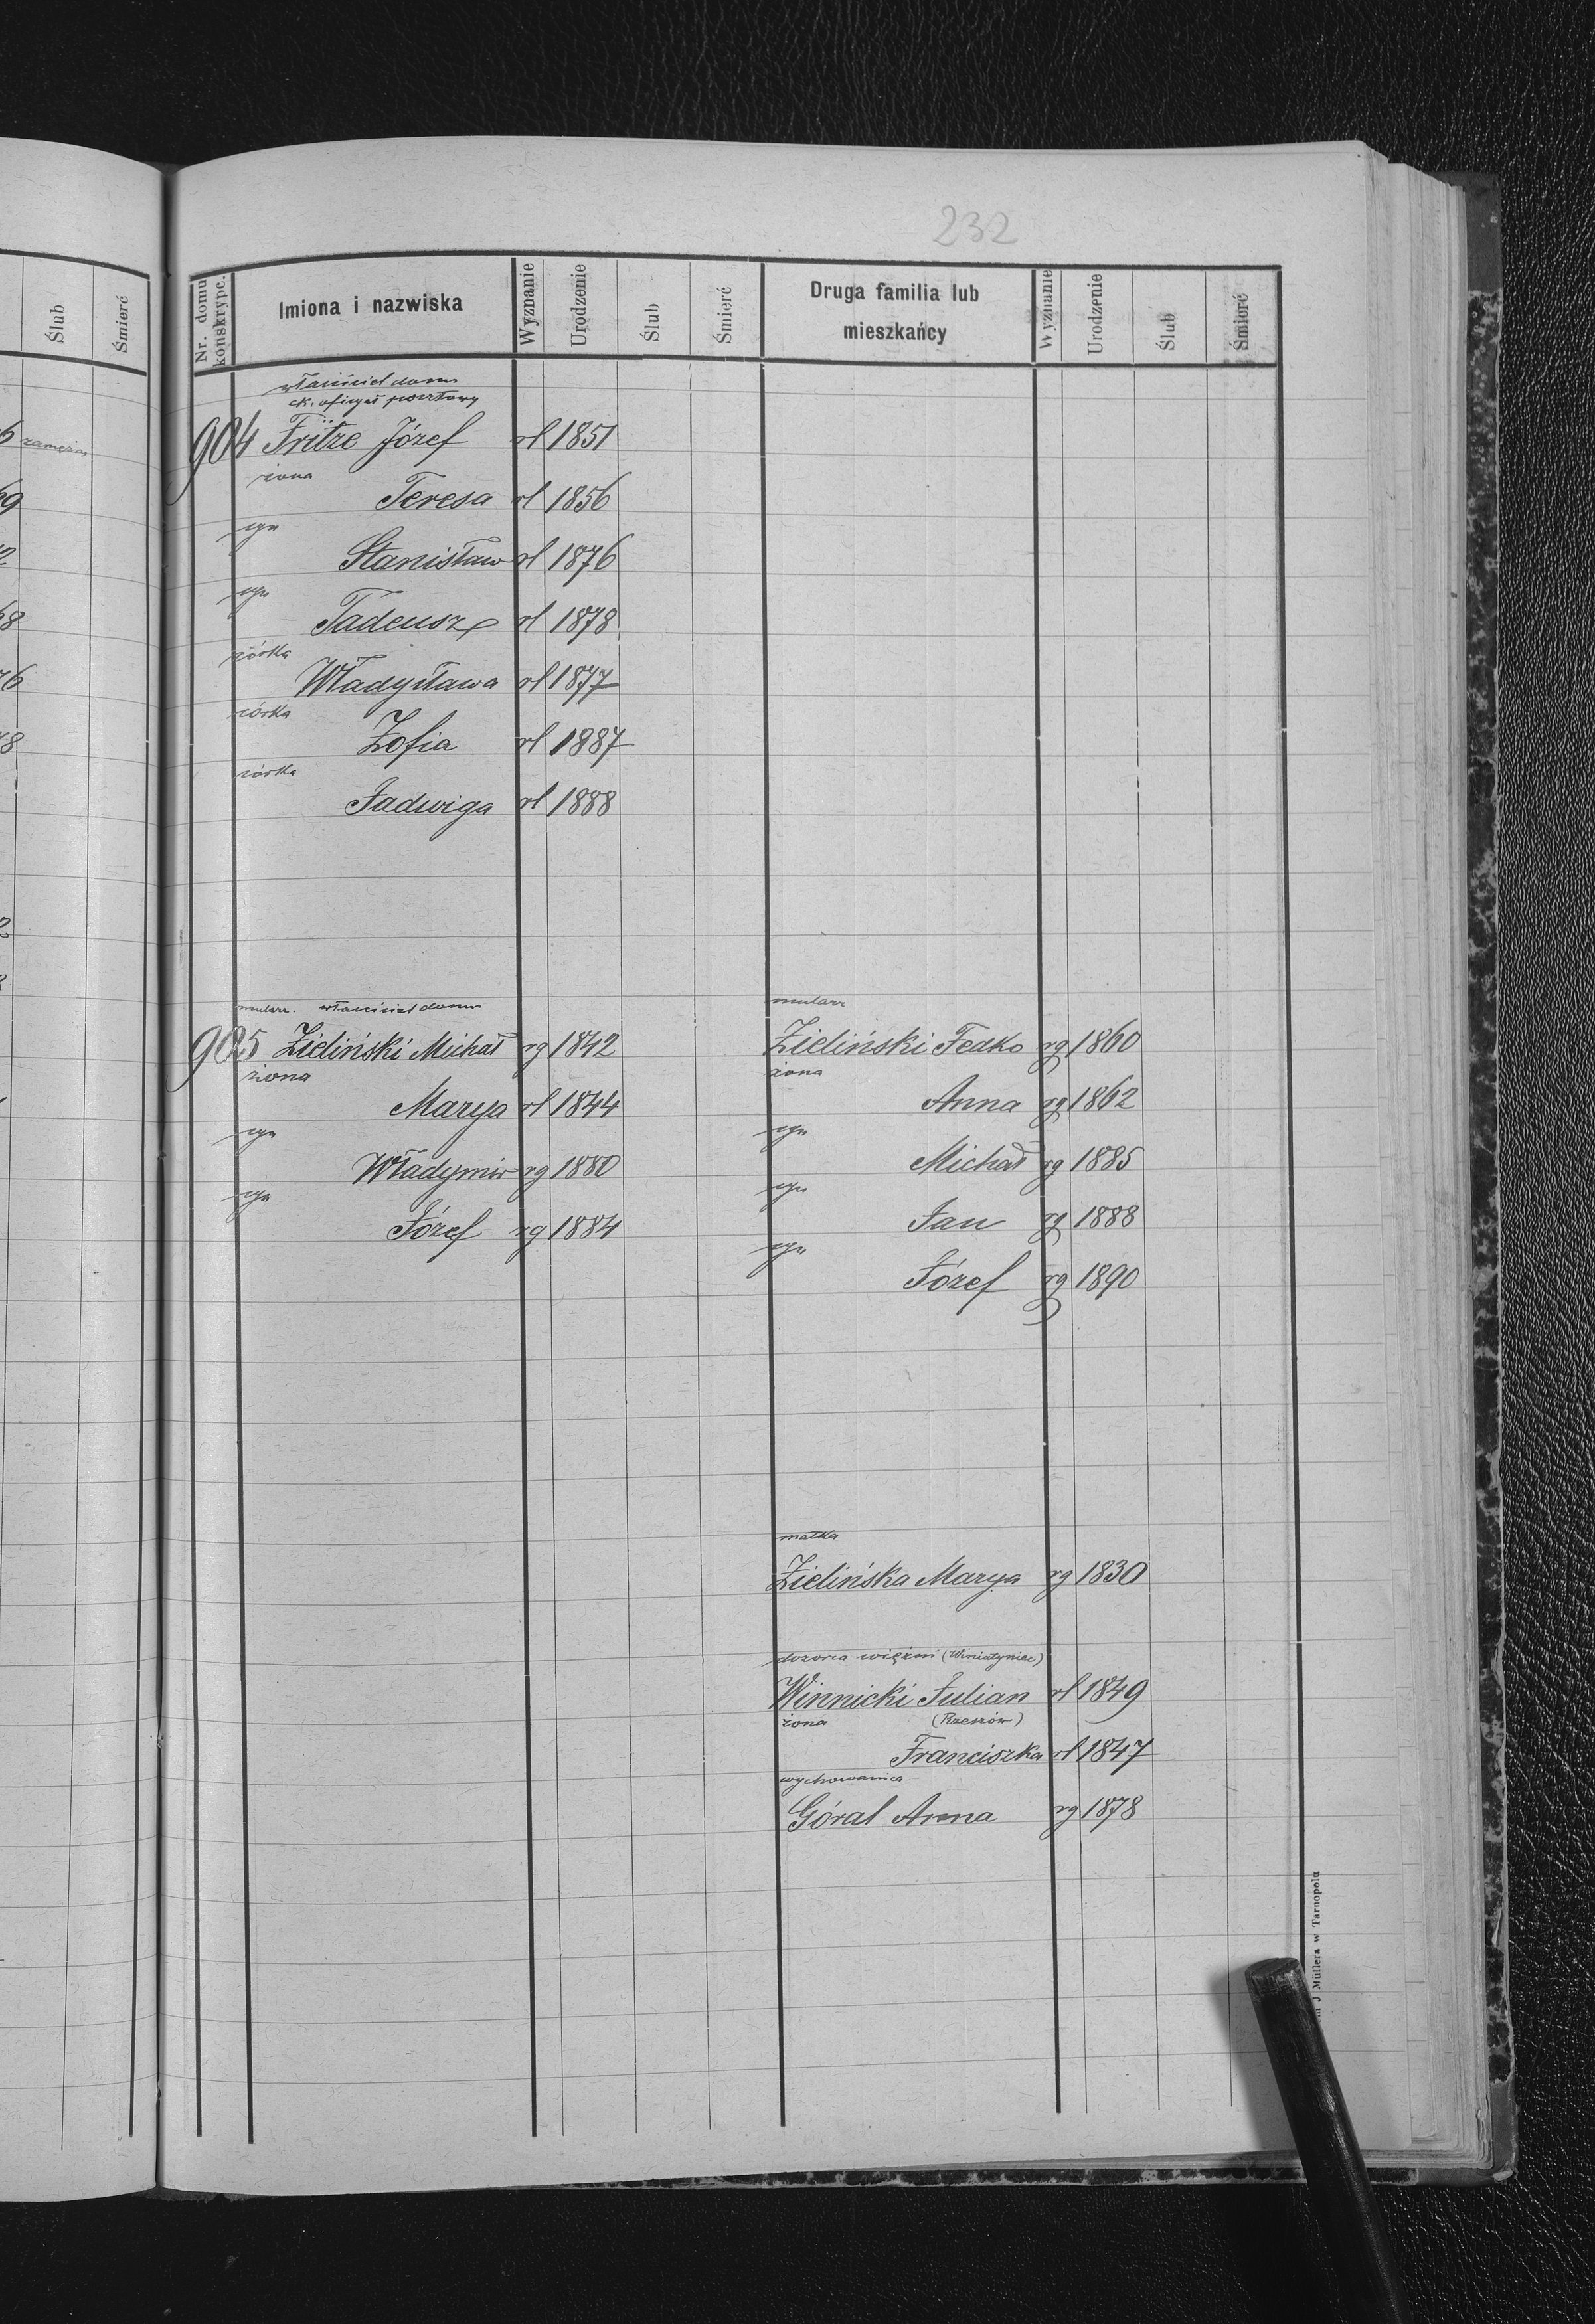 232
Nr. domu konskrypc.
Imiona i nazwiska
Wyznanie
Urodzenie
Ślub
Śmierć
Druga familia lub mieszkańcy
Wyznanie
Urodzenie
Ślub
Śmierć
właściciel domu
ck. oficyał pocztowy
904 Fritze Józef rl 1851
żona
Teresa rl 1856
syn
Stanisław rl 1876
syn
Tadeusz rl 1878
córka
Władysława rl 1877
córka
Zofia rl 1887
córka
Jadwiga rl 1888
mularz. właściciel domu
905 Zieliński Michał rg 1842
żona
Marya rl 1844
syn
Władymir rg 1880
syn
Józef rg 1884
mularz
Zieliński Fedko rg 1860
żona
Anna rg 1862
syn
Michał rg 1885
syn
Jan rg 1888
syn
Józef rg 1890
matka
Zielińska Marya rg 1830
dozorca więzni (Winiatyniec)
Winnicki Julian rl 1849
żona (Rzeszów)
Franciszka rl 1847
wychowanica
Góral Anna rg 1878
J Müllera w Tarnopolu
Ślub
Śmierć
69
2
68
76
8